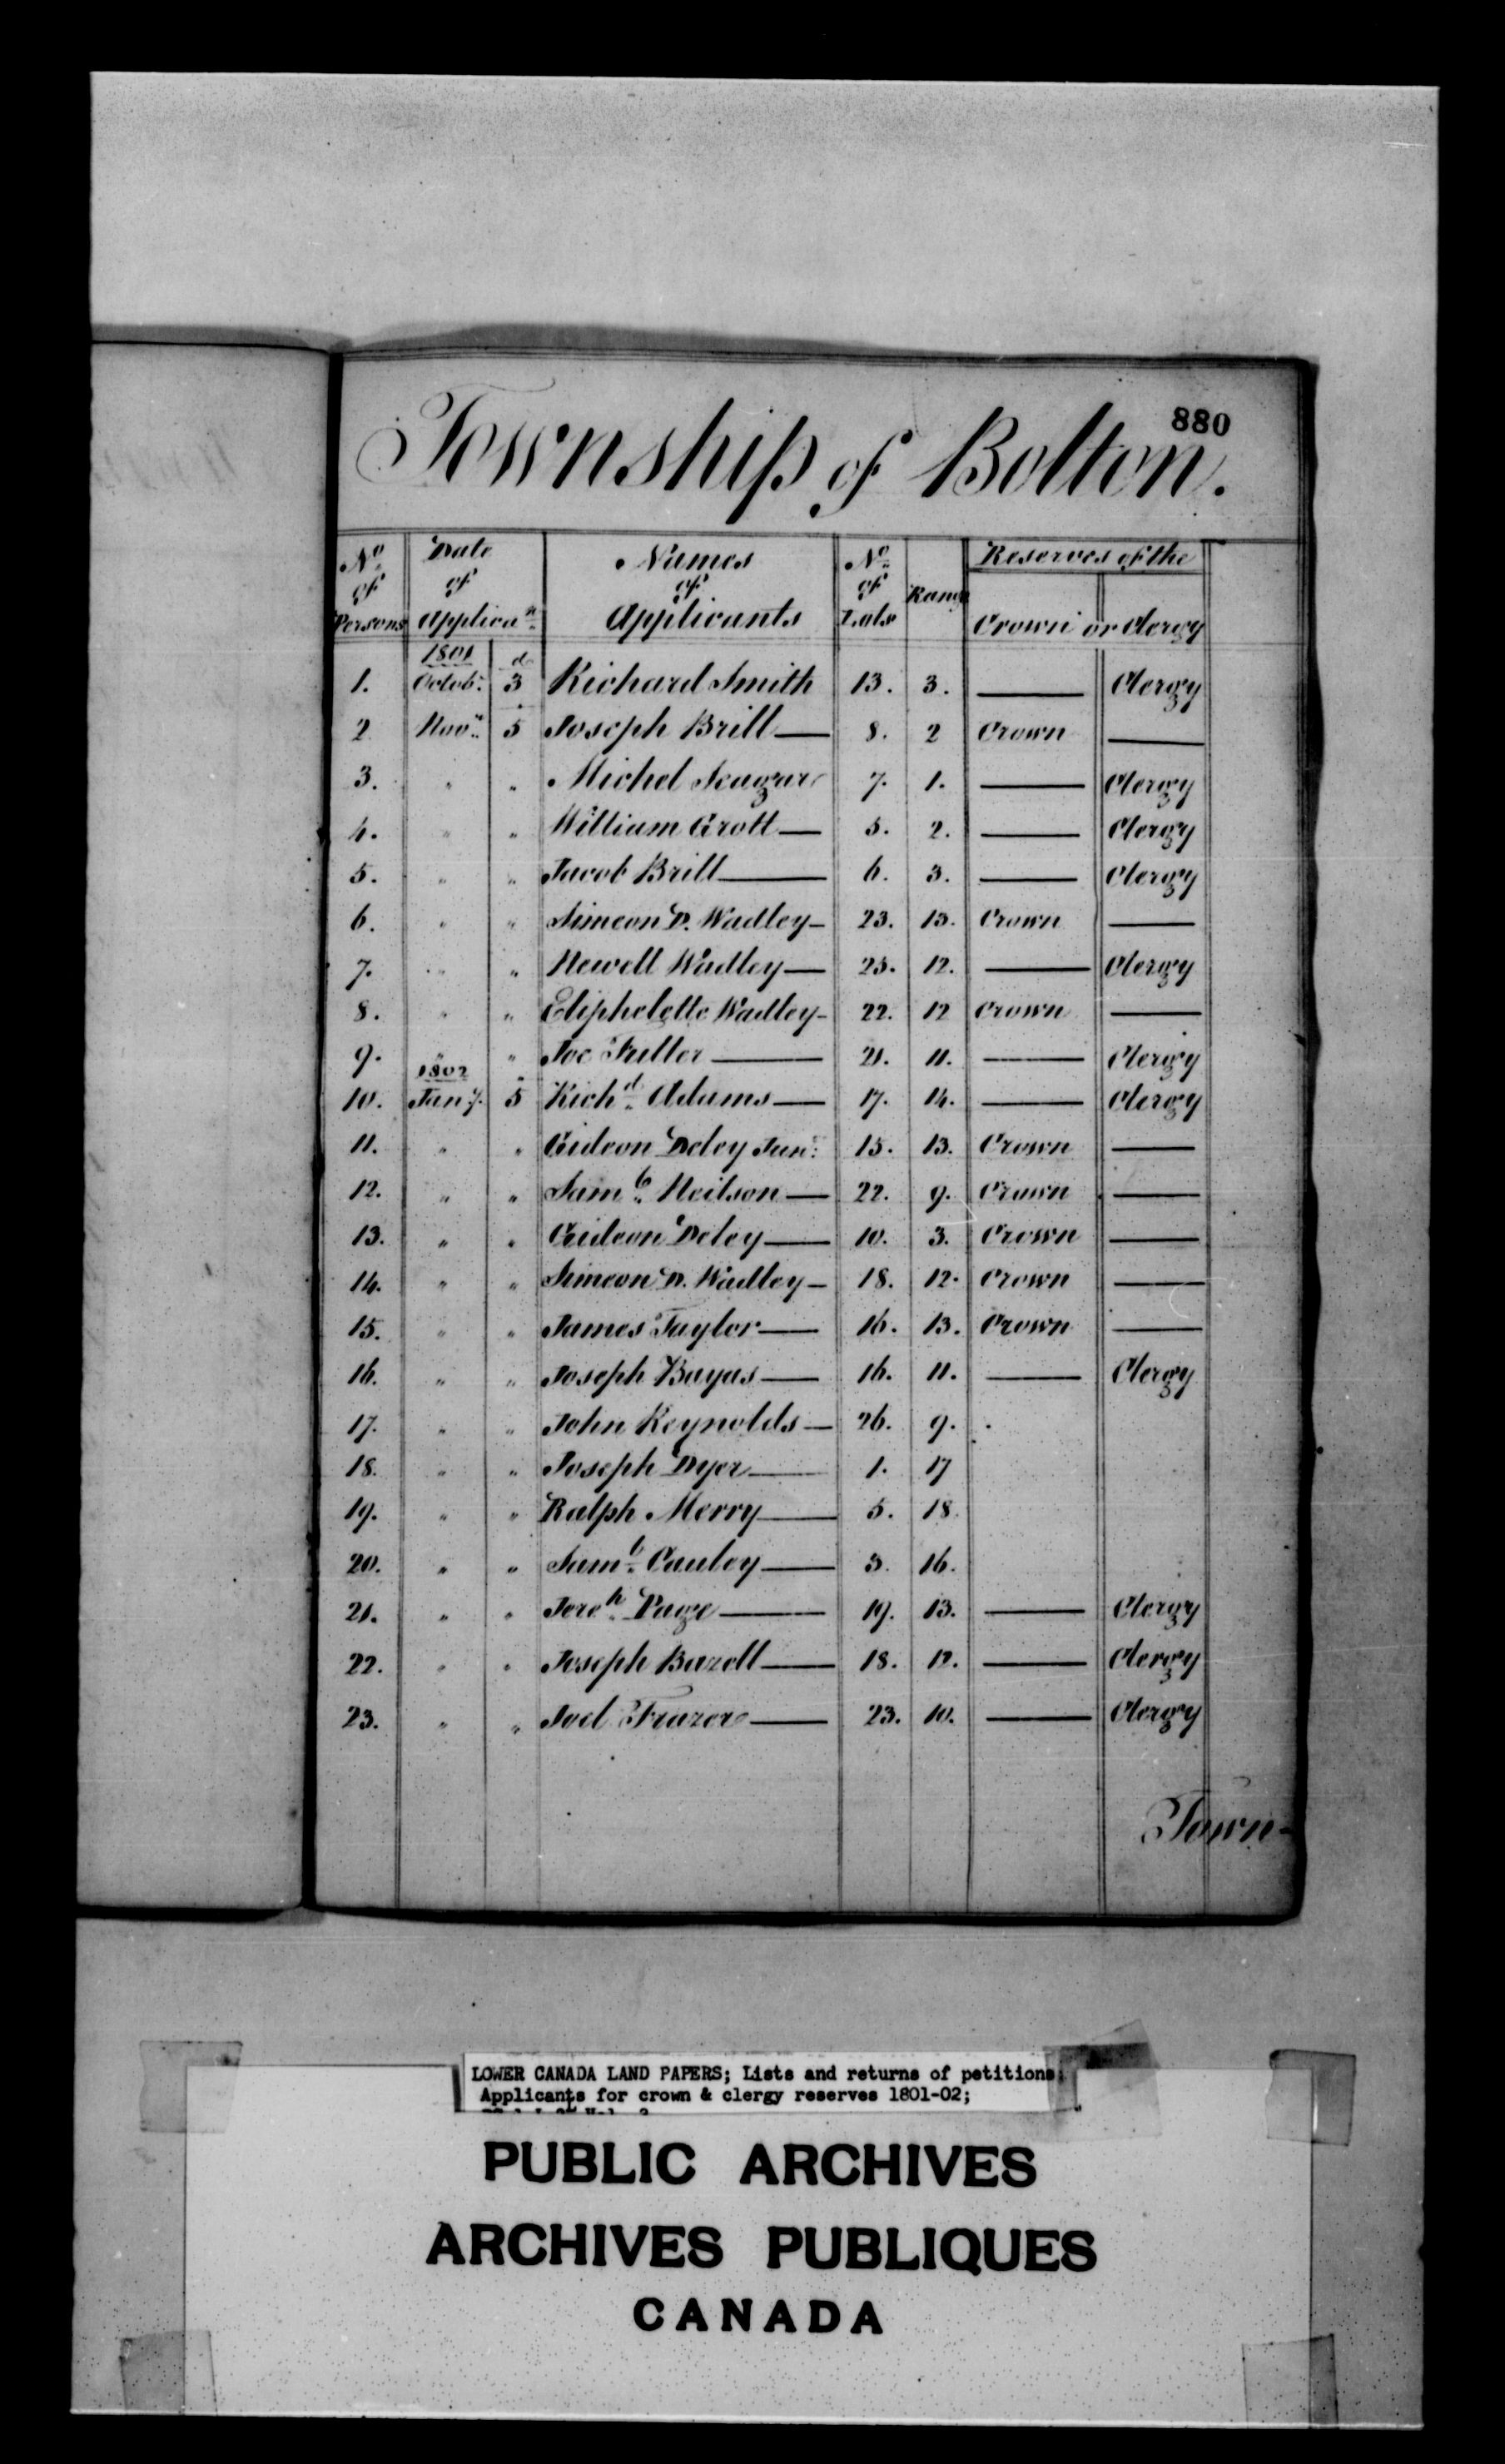 880
Township of Bolton.
No. of Persons | Date of Applican. | Names of Applicants | No. of Lots | Range | Reserves of the Crown or Clergy
1801 d
1. Octob: 3 Richard Smith 13. 3. —— Clergy
2 Nov. 5 Joseph Brill — 8. 2 Crown ——
3. " " Michel Seagar 7. 1. —— Clergy
4. " " William Grott — 5. 2. —— Clergy
5. " " Jacob Brill — 6. 3. —— Clergy
6. " " Simeon D. Wadley — 23. 13. Crown ——
7. " " Newell Wadley — 25. 12. —— Clergy
8. " " Eliphelette Wadley — 22. 12 Crown ——
9. " " Joe Fuller — 21. 11. —— Clergy
1802
10. Jany. 5 Richd. Adams — 17. 14. —— Clergy
11. " " Gideon Deley Jun: 15. 13. Crown ——
12. " " Saml. Neilson — 22. 9. Crown ——
13. " " Gideon Deley — 10. 3. Crown ——
14. " " Simeon D. Wadley — 18. 12. Crown ——
15. " " James Taylor — 16. 13. Crown ——
16. " " Joseph Bayas — 16. 11. —— Clergy
17. " " John Reynolds — 26. 9.
18. " " Joseph Dyer — 1. 17
19. " " Ralph Merry — 5. 18.
20. " " Saml. Cauley — 3. 16.
21. " " Jereh. Page — 19. 13. —— Clergy
22. " " Joseph Bazell — 18. 12. —— Clergy
23. " " Joel Frazer — 23. 10. —— Clergy
Town-
LOWER CANADA LAND PAPERS; Lists and returns of petitions;
Applicants for crown & clergy reserves 1801-02;
PUBLIC ARCHIVES
ARCHIVES PUBLIQUES
CANADA